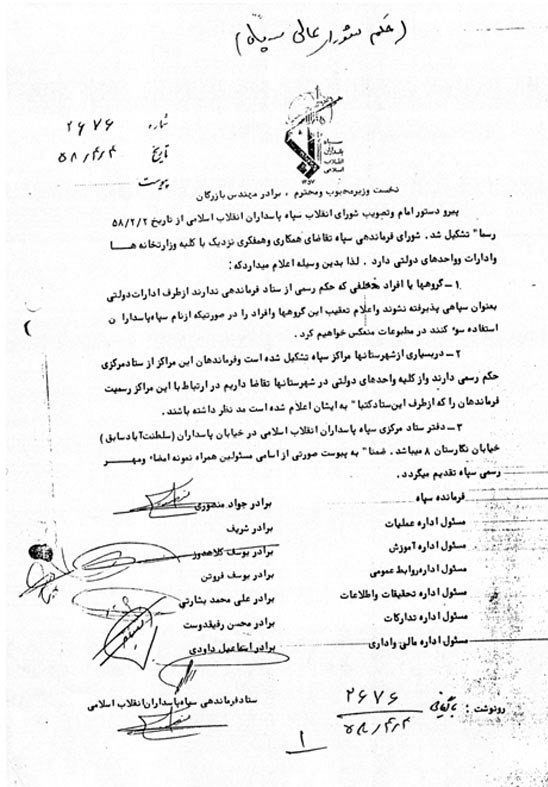 (حکم شورای عالی سپاه)
سپاه
پاسداران
انقلاب
اسلامی
۱۳۵۷
شماره ۲۶۷۶
تاریخ ۵۸/۴/۴
پیوست
نخست وزیرمحبوب ومحترم ، برادر مهندس بازرگان
پیرو دستور امام وتصویب شورای انقلاب سپاه پاسداران انقلاب اسلامی از تاریخ ۵۸/۲/۲
رسما" تشکیل شد . شورای فرماندهی سپاه تقاضای همکاری وهمفکری نزدیک با کلیه وزارتخانه هـا
وادارات وواحدهای دولتی دارد . لذا بدین وسیله اعلام میداردکه :
۱ – گروهها یا افراد مختلفی که حکم رسمی از ستاد فرماندهی ندارند ازطرف ادارات‌دولتی
بعنوان سپاهی پذیرفته نشوند واعلام تعقیب این گروهها وافراد را در صورتیکه ازنام سپاه‌پاسدارا ن
استفاده سو٬ کنند در مطبوعات منعکس خواهیم کرد .
۲ – دربسیاری ازشهرستانها مراکز سپاه تشکیل شده است وفرماندهان این مراکز از ستادمرکزی
حکم رسمی دارند واز کلیه واحدهای دولتی در شهرستانها تقاضا داریم در ارتباط با این مراکز رسمیت
فرماندهان را که ازطرف این‌ستادکتبا" به ایشان اعلام شده است مد نظر داشته باشند .
۳ – دفتر ستاد مرکزی سپاه پاسداران انقلاب اسلامی در خیابان پاسداران (سلطنت‌آبادسابق )
خیابان نگارستان ۸ میباشد . ضمنا" به پیوست صورتی از اسامی مسئولین همراه نمونه امضاء ومهـر
رسمی سپاه تقدیم میگردد .
فرمانده سپاه برادر جواد منصوری
مسئول اداره عملیات برادر شریف
مسئول اداره آموزش برادر یوسف کلاهدوز
مسئول اداره‌روابط عمومی برادر یوسف فروتن
مسئول اداره تحقیقات واطلاعات برادر علی محمد بشارتی
مسئول اداره تدارکات برادر محسن رفیقدوست
مسئول اداره مالی واداری برادر اسماعیل داودی
ستادفرماندهی سپاه پاسداران‌انقلاب اسلامی
رونوشت : بایگانی ۲۶۷۶
۵۸/۴/۴
۱